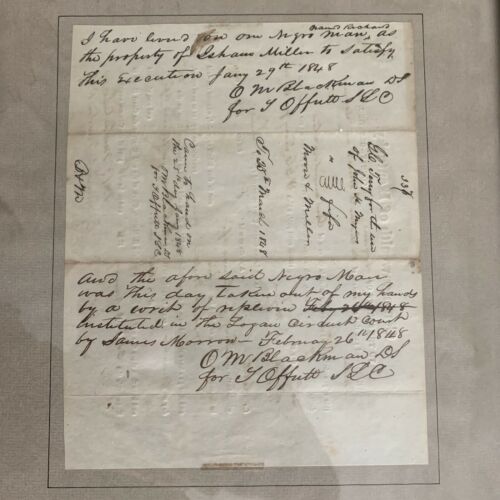 named Richard
I have levied on one Negro man, as
the property of Isham Miller to satisfy
this Execution Jany 29th 1848
O M Blackman DS
for T Offutt SLC
Came to hand on
the 28th day Jany 1848
O M Blackman DS
for T Offutt SLC
To 4th March 1848
Moore & Miller
" fifa
of John H
And the afore said Negro Man
was this day taken out of my hands
by a writ of replevin Feby 26 1848
instituted in the Logan Circuit Court
by James Morrow - February 26th 1848
O M Blackman DS
for T Offutt SLC